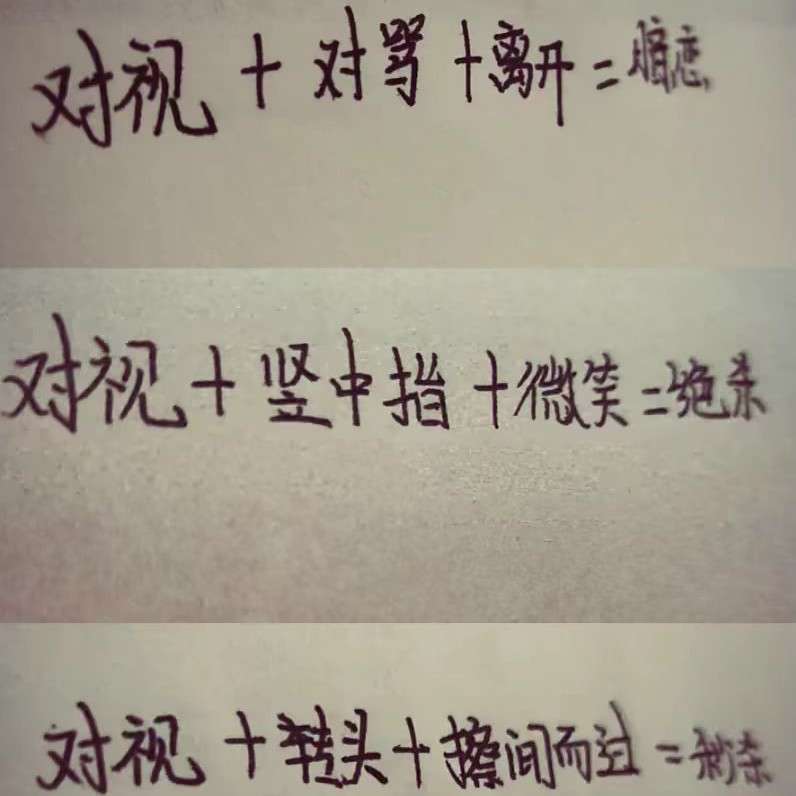 对视+对骂+离开=暗恋
对视+竖中指+微笑=绝杀
对视+转头+擦间而过=秒杀